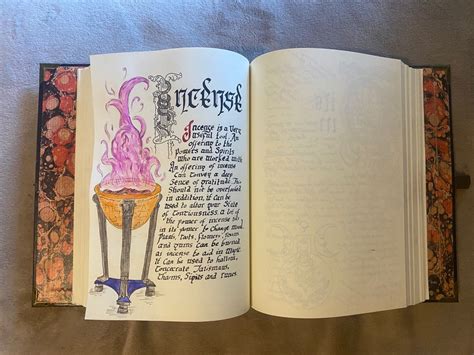 Incense
Incense is a Very
Useful tool. An
offering to the
Powers and Spirits
Who are Worked with
An offering of incense
Can Convey a deep
Sense of gratitude. This
Should not be overlooked
in addition, it can be
used to alter your State
of Conciousness a lot of
the power of incense is
in its power to Change mood
Plants, barks, flowers,
and gums can be burned
as incense to aid in
it Can be used to hallow,
Consecrate Talismans,
Charms, Sigils and runes.